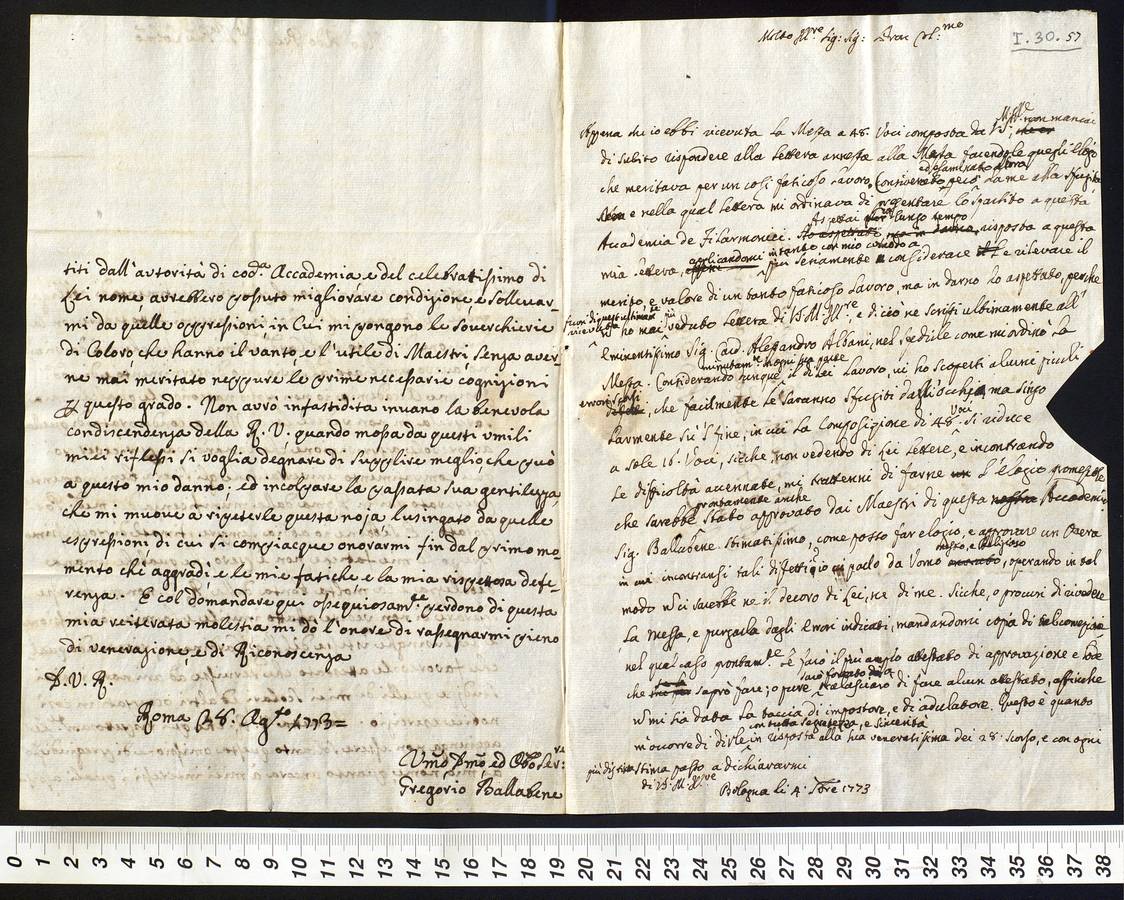 titi dall'autorità di cod.ª Accademia, e del celebratissimo di
Lei nome avrebbero possuto migliorare condizione, e sollevar
mi da quelle oppressioni, in Cui mi pongono le soverchierie
di Coloro che hanno il vanto, e l'utile di Maestri, senza aver
ne mai meritato neppure le prime necessarie cognizioni
p questo grado. Non avrò infastidita invano la benevola
condiscendenza della R. V. quando mossa da questi umili
miei riflessi si voglia degnare di supplire meglio che può
a questo mio danno; ed incolpare la passata sua gentilezza,
che mi muove à ripeterle questa noja, lusingato da quelle
espressioni, di cui si compiacque onorarmi fin dal primo mo,
mento che aggradì e le mie fatiche e la mia rispettosa defe,
renza. E col domandare qui ossequiosam.te perdono di questa
mia reiterata molestia mi dò l'onore di rassegnarmi pieno
di venerazione, e di Riconoscenza
D. V. R.
Roma 28. Ag.to 1773=
Umo Dmo ed Obo Ser.
Gregorio Ballabene
I. 30. 57
Molto Ill.re Sig: Sig: Pron Col.mo
Appena che io ebbi ricevuta la Messa a 48. Voci composta da V.S. M. Ill.re non mancai
di subito rispondere alla Lettera annessa alla Messa facendole quegli Elogi
che meritava per un così faticoso Lavoro,
e nella qual Lettera mi ordinava di presentare lo spartito a questa
Aspettai lungo tempo
Accademia de Filarmonici. risposta a questa
mia Lettera, applicandomi intanto con mio comodo a
seriamente considerare e rilevare il
merito, e valore di un tanto faticoso Lavoro, ma in darno ho aspettato, perche
ho mai veduto Lettera di V.S. M. Ill.re, e di ciò ne scrissi ultimamente all'
Eminentissimo Sig. Card. Alessandro Albani, nel spedirle come mi ordinò la
minutam.te in ogni sua parte
Messa. Considerando dunque il di Lei Lavoro, vi ho scoperti alcuni piccoli
errori scorsi
, che facilmente Le saranno sfugiti dall'occhio, ma singo
larmente sù 'l fine, in cui la Composizione di 48. Voci si riduce
a sole 16. Voci, sicche non vedendo di Lei Lettere, e incontrando
Le difficoltà accennate, mi trattenni di farne L'elogio
prontamente anche
che sarebbe stato approvato dai Maestri di questa Accademia
Sig. Ballabene stimatissimo, come posso far elogio, e approvare un Opera
in cui incontransi tali difetti, io parlo da Uomo onesto, e Religioso, operando in tal
modo non ci sarebbe ne il decoro di Lei, ne di me. Sicche, o procuri di rivedere
La Messa, e purgarla dagli Errori indicati, mandandomi copia di
nel qual caso prontam.te Le farò il più ampio attestato di approvazione e lode
che saprò fare; oppure sarò forzato di
tralasciare di fare alcun attestato, affinche
non mi sia data La taccia di impostore, e di adulatore. Questo è quando
con tutta segretezza, e sincerità
m'occorre di dirle in risposta alla sua veneratissima dei 28: scorso, e con ogni
più distinta stima passo a dichiararmi
di V.S. M. Ill.re
Bologna li 4. 7bre 1773
0 1 2 3 4 5 6 7 8 9 10 11 12 13 14 15 16 17 18 19 20 21 22 23 24 25 26 27 28 29 30 31 32 33 34 35 36 37 38